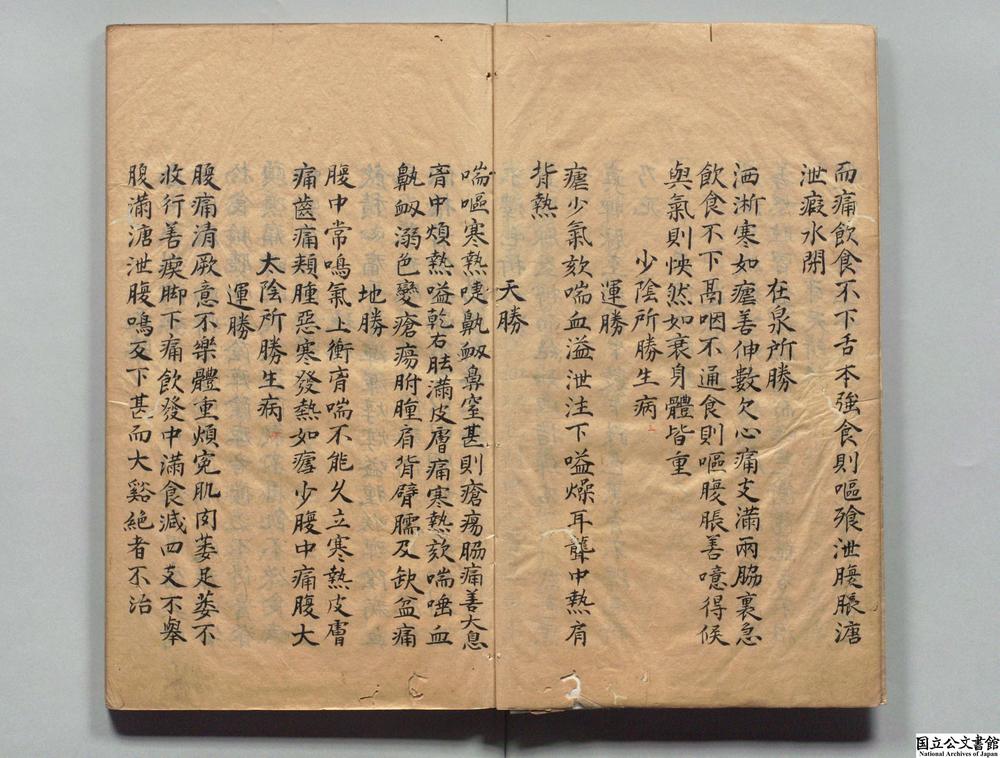 而痛飲食不下舌本強食則嘔飱泄腹脹溏
泄瘕水閉
在泉所勝
洒淅寒如瘧善伸數欠心痛支滿兩脇裏急
飲食不下鬲咽不通食則嘔腹脹善噫得候
與氣則怏然如衰身體皆重
少陰所勝生病
上
運勝
瘧少氣欬喘血溢泄注下嗌燥耳聾中熱肩
背熱
天勝
喘嘔寒熱嚏鼽衂鼻窒甚則瘡瘍脇痛善大息
胷中煩熱嗌乾右胠滿皮膚痛寒熱欬喘唾血
鼽衂溺色變瘡瘍胕腫肩背臂臑及缺盆痛
地勝
腹中常鳴氣上衝胷喘不能久立寒熱皮膚
痛齒痛頰腫惡寒發熱如瘧少腹中痛腹大
太陰所勝生病
運勝
腹痛清厥意不樂體重煩寃肌肉萎足萎不
收行善瘈脚下痛飲發中滿食減四支不舉
腹滿溏泄腹鳴反下甚而大谿絕者不治
国立公文書館
National Archives of Japan